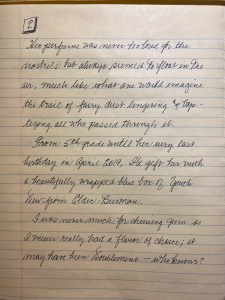 ?
Her perfume was never too loud for the
nostrils but always seemed to float in the
air, much like what one would imagine
the trail of fairy dust lingering &
all who passed through it.
From 5th grade until her very last
birthday in April 2019, I'd gift her with
a beautifully wrapped blue box of Youth
Dew from Estee
I was never much for chewing gum so
I never really had a flavor of choice; it
may have been Doublemint - who knows?